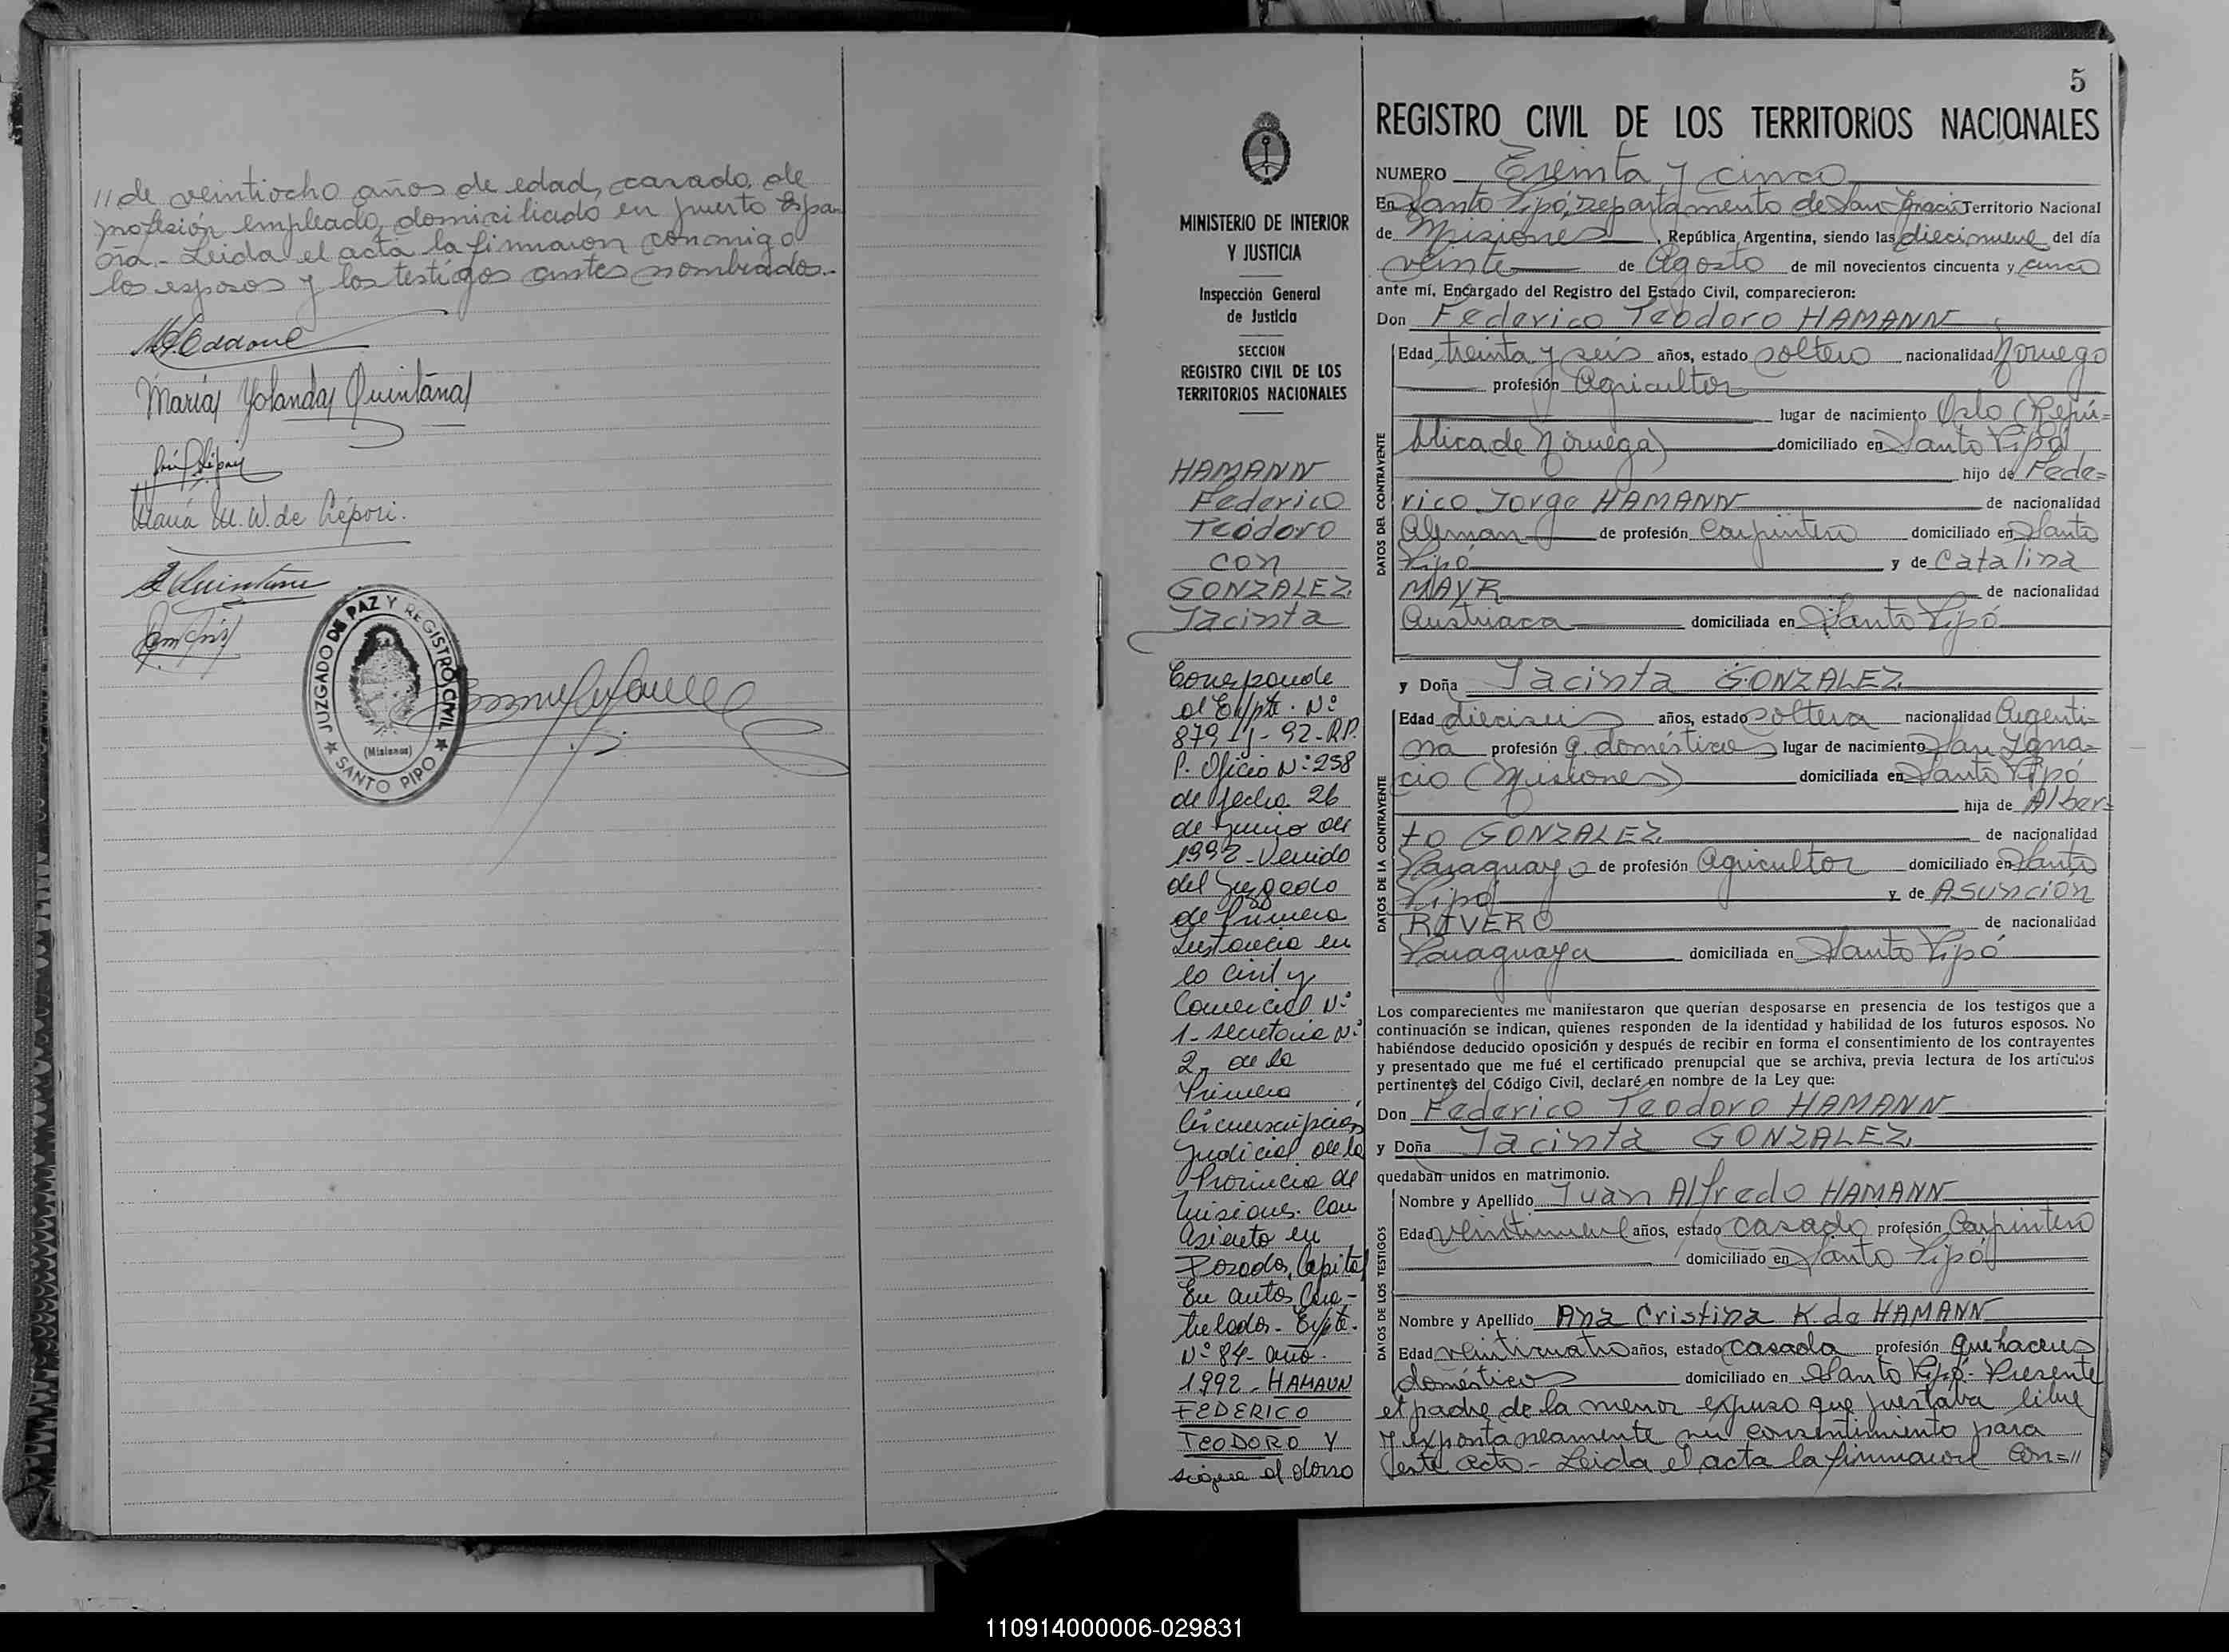 // de veintiocho años de edad, casado, de
profesión empleado, domiciliado en puerto Espa
ña.- Leida el acta la firmaron conmigo
los esposos y los testigos antes nombrados.-
María Yolanda Quintana
María M. W. de Répori.
JUZGADO DE PAZ Y REGISTRO CIVIL
(Misiones)
SANTO PIPO
MINISTERIO DE INTERIOR
Y JUSTICIA
Inspección General
de Justicia
SECCION
REGISTRO CIVIL DE LOS
TERRITORIOS NACIONALES
HAMANN
Federico
Teodoro
con
GONZALEZ
Jacinta
Corresponde
al Expte. Nº
879-J-92-R.P.
P. Oficio Nº 258
de fecha 26
de junio de
1992 - Venido
del Juzgado
de Primera
Instancia en
lo Civil y
Comercial Nº
1- Secretaria Nº
2- de la
Primera
Circunscripcion
Judicial de la
Provincia de
Misiones. Con
asiento en
Posadas, Capital
En autos Cara-
tulados- Expte.
Nº 84- año
1992- HAMANN
FEDERICO
TEODORO Y
sigue al dorso
5
REGISTRO CIVIL DE LOS TERRITORIOS NACIONALES
NUMERO Treinta y cinco
En Santo Pipó, Departamento de San Ignacio Territorio Nacional
de Misiones, República Argentina, siendo las diecinueve del día
veinte de Agosto de mil novecientos cincuenta y cinco
ante mí, Encargado del Registro del Estado Civil, comparecieron:
Don Federico Teodoro HAMANN
DATOS DEL CONTRAYENTE
Edad treinta y seis años, estado soltero nacionalidad Noruego
profesión Agricultor
lugar de nacimiento Oslo (Repú=
blica de Noruega) domiciliado en Santo Pipó
hijo de Fede=
rico Jorge HAMANN de nacionalidad
Aleman de profesión Carpintero domiciliado en Santo
Pipó y de Catalina
MAYR de nacionalidad
Austriaca domiciliada en Santo Pipó
y Doña Jacinta GONZALEZ
DATOS DE LA CONTRAYENTE
Edad dieciseis años, estado soltera nacionalidad Argenti=
na profesión q. domésticos lugar de nacimiento San Igna=
cio (Misiones) domiciliada en Santo Pipó
hija de Alber=
to GONZALEZ de nacionalidad
Paraguayo de profesión Agricultor domiciliado en Santo
Pipó y de Asunción
RIVERO de nacionalidad
Paraguaya domiciliada en Santo Pipó
Los comparecientes me manifestaron que querían desposarse en presencia de los testigos que a
continuación se indican, quienes responden de la identidad y habilidad de los futuros esposos. No
habiéndose deducido oposición y después de recibir en forma el consentimiento de los contrayentes
y presentado que me fué el certificado prenupcial que se archiva, previa lectura de los artículos
pertinentes del Código Civil, declaré en nombre de la Ley que:
Don Federico Teodoro HAMANN
y Doña Jacinta GONZALEZ
quedaban unidos en matrimonio.
DATOS DE LOS TESTIGOS
Nombre y Apellido Juan Alfredo HAMANN
Edad veintinueve años, estado casado profesión Carpintero
domiciliado en Santo Pipó
Nombre y Apellido Ana Cristina K. de HAMANN
Edad veinticuatro años, estado casada profesión Quehaceres
domésticos domiciliado en Santo Pipó.- Presente
el padre de la menor expuso que prestava libre
y expontaneamente su consentimiento para
este acto.- Leida el acta la firmaron con=//
110914000006-029831